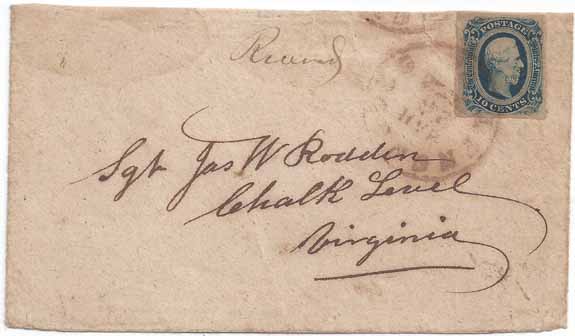 POSTAGE
Confederate States of America
10 CENTS
Sgt Jas W Rodden
Chalk Level
Virginia